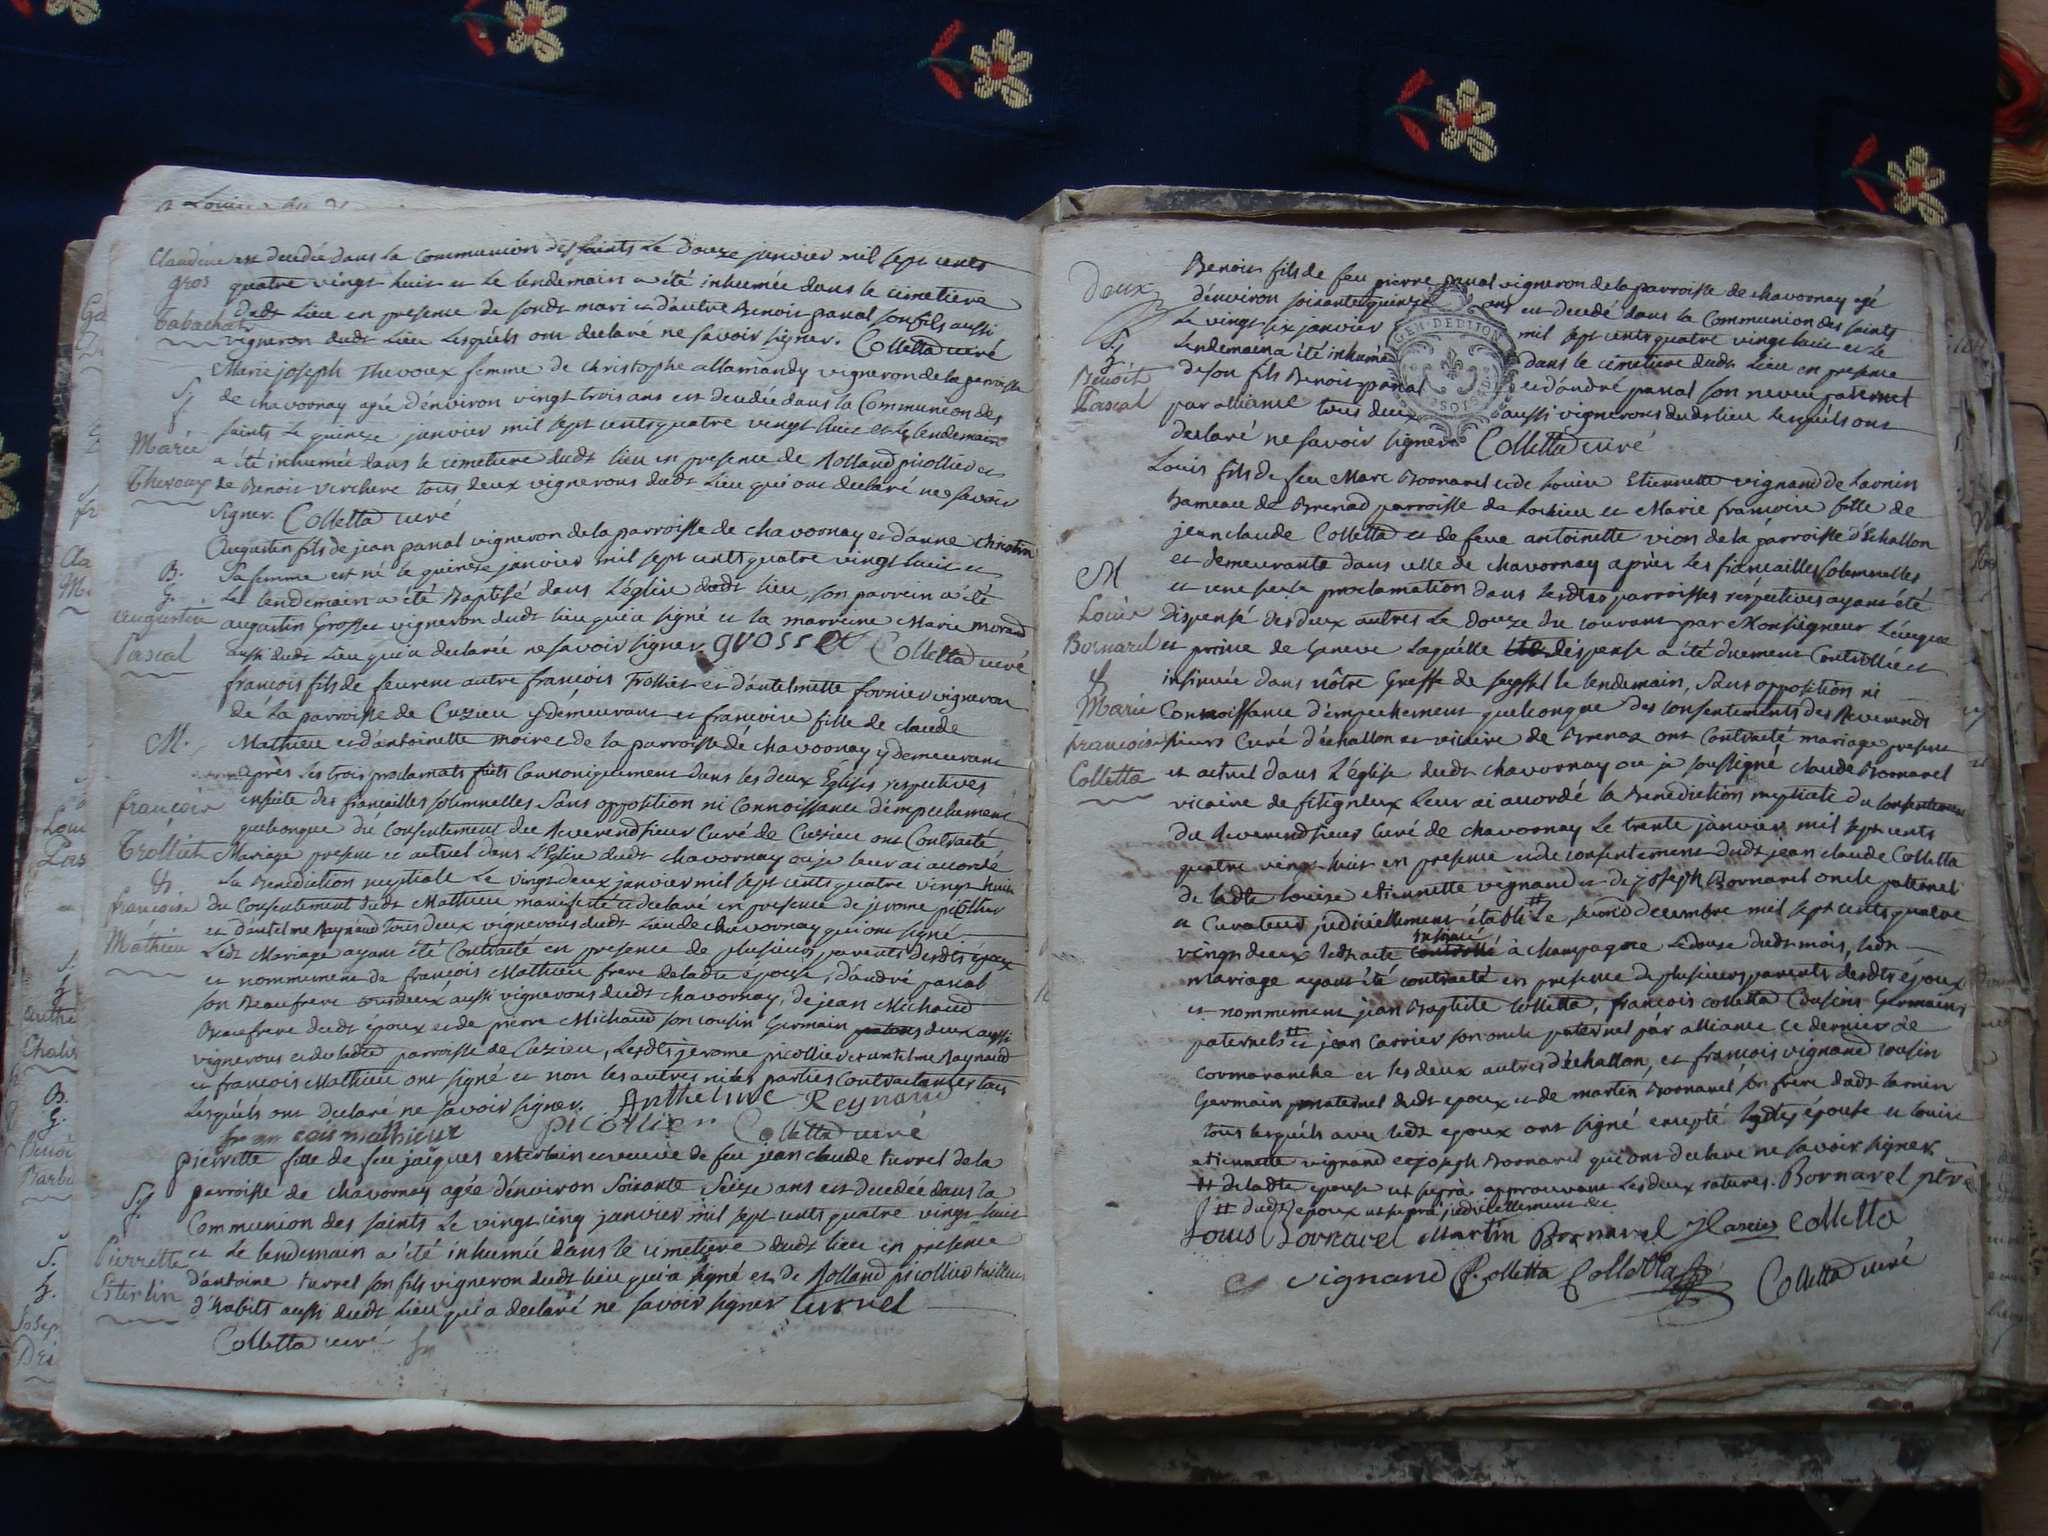 Claudine
gros
tabachat
est decedée dans la Communion des saints Le douze janvier mil sept cents
quatre vingt huit et le lendemain a été inhumée dans le cimetiere
dudt Lieu en presence de sondt mari et d'autre Benoit panal son fils aussi
vigneron dudt Lieu Lesquels ont declaré ne savoir signer. Colletta curé
Marie
Thevoux
Marie joseph Thevoux femme de christophe allamandy vigneron de la parroisse
de chavornay agée d'environ vingt trois ans est decedée dans la Communion des
saints Le quinze janvier mil sept cents quatre vingt huit et le lendemain
a été inhumée dans le cimetiere dudt lieu en presence de Rolland picollier et
de Benoit verchere tous deux vignerons dudt Lieu qui ont declaré ne savoir
signer. Colletta curé
B.
G.
augustin
Pascal
Augustin fils de jean panal vigneron de la parroisse de chavornay et d'anne christin
sa femme est né le quinze janvier mil sept cents quatre vingt huit et
Le lendemain a été Baptisé dans L'église dudt Lieu, son parrein a été
augustin Grosset vigneron dudt lieu qui a signé et la marreine Marie morand
aussi dudt Lieu qui a declarée ne savoir signer. grosset Colletta curé
M.
francois
Trolliet
&
francoise
Mathieu
francois fils de feu rene autre francois Trolliet et d'antelmette fornier vigneron
de la parroisse de Cuzieu y demeurant et francoise fille de claude
Mathieu et d'antoinette moiret de la parroisse de chavornay y demeurant
après les trois proclamats faits Cannoniquement dans les deux Églises respectives
ensuite des fiancailles solemnelles sans opposition ni Connoissance d'empechement
quelconque du consentement du Reverend sieur Curé de Cuzieu ont Contracté
Mariage present et actuel dans L'Eglise dudt chavornay ou je leur ai accordé
La Benediction nuptiale Le vingt deux janvier mil sept cents quatre vingt huit
du Consentement dudt Mathieu manifesté et declaré en presence de jerome picollier
et d'antelme Raynaud tous deux vignerons dudt Lieu de chavornay qui ont signé.
Ledt Mariage ayant été Contracté en presence de plusieurs parents desdts époux
et nommement de francois Mathieu frere de ladte epouse, d'andré panal
son Beaufrere tous deux aussi vignerons dudt chavornay, de jean Michaud
Beaufrere dudt époux et de pierre Michaud son cousin Germain deux aussi
vignerons et de ladte parroisse de Cuzieu, Lesdts jerome picollier et antelme Raynaud
et francois Mathieu ont signé et non les autres ni les parties Contractantes tous
Lesquels ont declaré ne savoir signer. Anthelme Reynaud
francois mathieux picollier Colletta curé
Pierrette
Esterlin
pierrette fille de feu jacques esterlin et veuve de feu jean claude turrel de la
parroisse de chavornay agée d'environ soixante seize ans est decedée dans la
Communion des saints Le vingt cinq janvier mil sept cents quatre vingt huit
et Le lendemain a été inhumée dans le cimetiere dudt lieu en presence
d'antoine turrel son fils vigneron dudt lieu qui a signé et de Rolland picollier tailleur
d'habits aussi dudt Lieu qui a declaré ne savoir signer turrel
Colletta curé
Deux
Benoit
Pascal
Benoit fils de feu pierre panal vigneron de la parroisse de chavornay agé
d'environ soixante quinze ans est decedé dans la Communion des saints
Le vingt six janvier mil sept cents quatre vingt huit et Le
Lendemain a été inhumé dans le cimetiere dudt Lieu en presence
de son fils Benoit panal et d'andré panal son neveu paternel
par alliance tous deux aussi vignerons dudt lieu Lesquels ont
declaré ne savoir signer Colletta curé
GEN DE DIJON
M
Louis
Bornarel
&
Marie
francoise
Colletta
Louis fils de feu Marc Bornarel et de Louise Etiennette vignand de Lavnin
hameau de Brenad parroisse de Lochieu et Marie francoise fille de
jean claude Colletta et de feue antoinette vion de la parroisse d'Echallon
et demeurante dans celle de chavornay après les fiancailles solemnelles
et une seule proclamation dans lesdtes parroisses respectives ayant été
Dispensé des deux autres Le douze du courant par Monseigneur L'évêque
et prince de Geneve Laquelle dispense a été duement Controllée et
insinuée dans nôtre Greffe de seyssel le lendemain, sans opposition ni
Connoissance d'empechement quelconque des consentements des Reverends
sieurs Curé d'échallon et vicaire de Brenaz ont Contracté mariage present
et actuel dans L'église dudt chavornay ou je soussigné claude Bornarel
vicaire de fitignieux Leur ai accordé la Benediction nuptiale du consentement
du Reverend sieur Curé de chavornay Le trente janvier mil sept cents
quatre vingt huit en presence et de consentement dudt jean claude Colletta
de ladte Louise etiennette vignand et de joseph Bornarel oncle paternel
et Curateur judiciellement établi Le second decembre mil sept cents quatre
vingt deux ledt acte insinué à champagne Le douze dudt mois, Ledt
mariage ayant été contracté en presence de plusieurs parents desdts époux
et nommement jean Baptiste Colletta, francois Colletta Cousins Germains
paternels et jean Carrier son oncle paternel par alliance ce dernier de
cormaranche et les deux autres d'échallon, et francois vignand cousin
Germain maternel dudt epoux et de martin Bornarel son frere dudt Lavnin
tous lesquels avec ledt epoux ont signé excepté ladte épouse et louise
etiennette vignand et joseph Bornarel qui ont declaré ne savoir signer.
# de ladte epouse ut suprà approuvant les deux ratures. Bornarel ptre
# dudt epoux ut suprà judiciellement
Louis Bornarel Martin Bornarel J Carrier Colletta
vignand f. Colletta Colletta Colletta curé